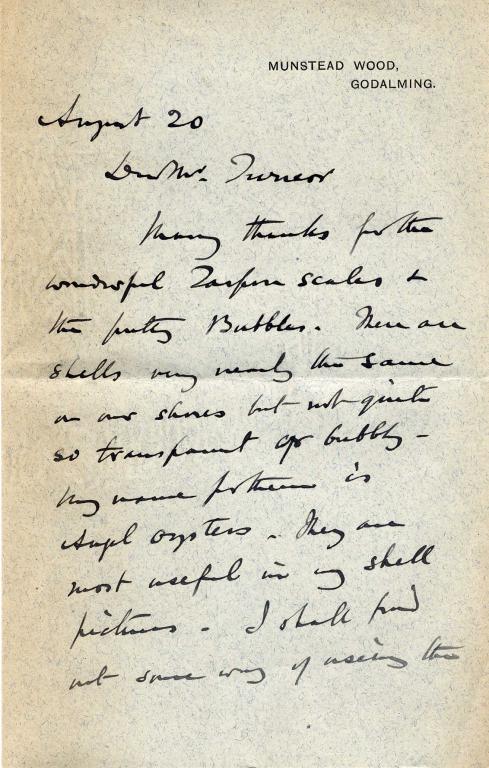 MUNSTEAD WOOD,
GODALMING.
August 20
Dear Mr. Turnor
Many thanks for the
wonderful Tarpon scales &
the pretty Bubbles. There are
shells very nearly the same
on our shores but not quite
so transparent or bubbly -
my name for them is
Angel oysters. They are
most useful in my shell
pictures. I shall find
out some way of using the